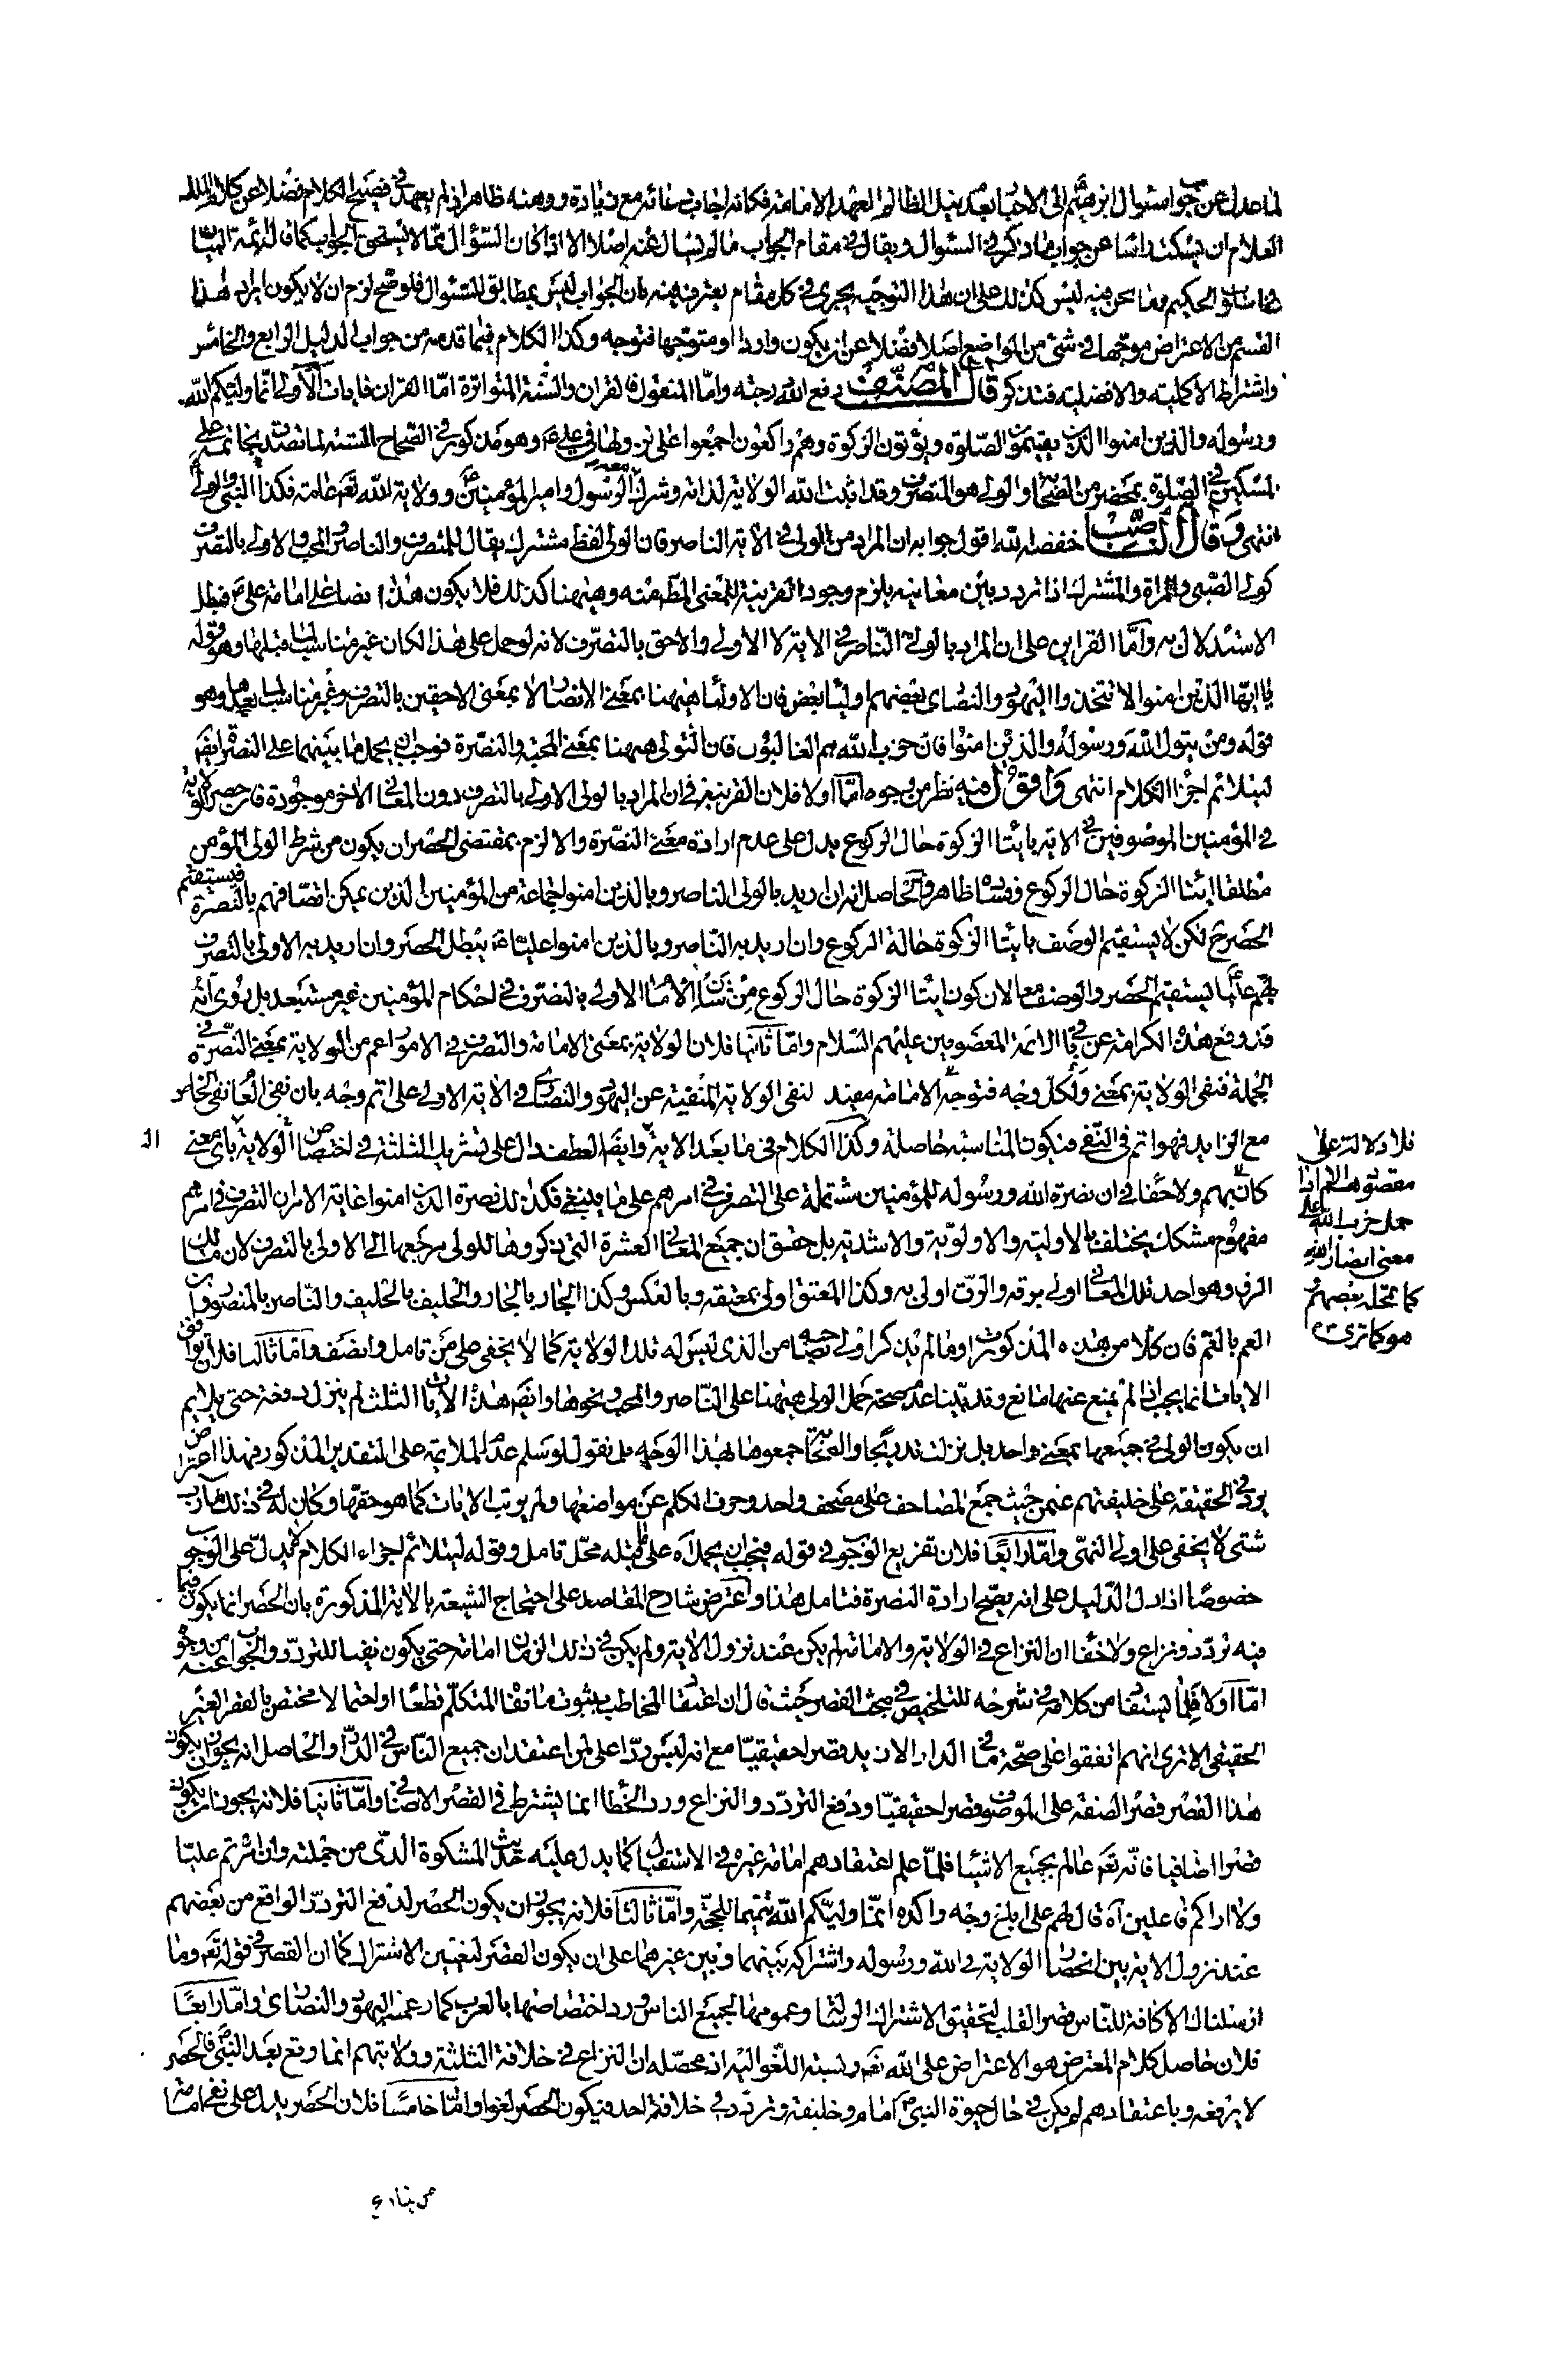 لما عدل عن جواب سئوال ابراهيم الى الاخبار بعدم نيل الظالم لعهد الامامة فكانه اجاب دعائه مع زيادة ووهنه ظاهر اذ لم يعهد في فصيح الكلام فضلا عن كلام الملك
العلام ان يسكت راسا عن جواب ما ذكر في السئوال ويقال في مقام الجواب ما لم يسال عنه اصلا الا اذا كان السؤال مما لا يستحق الجواب كما قال ائمة البيان
في اسلوب الحكيم وما نحن فيه ليس كذلك على ان هذا التوجيه يجرى في كل مقام يعترف فيه بان الجواب ليس بمطابق للسئوال فلو صح لزم ان لا يكون ايراد هذا
القسم من الاعتراض موجها في شئ من المواضع اصلا فضلا عن ان يكون واردا او متوجها فتوجه وكذا الكلام فيما قدمه من جواب الدليل الرابع والخامس
واشتراط الاكملية والافضلية فتذكر قال المصنف رفع الله درجته واما المنقول فالقران والسنة المتواترة اما القران فايات الاولى انما وليكم الله
ورسوله والذين امنوا الذين يقيمون الصلوة ويؤتون الزكوة وهم راكعون اجمعوا على نزولها في على ع وهو مذكور في الصحاح الستة لما تصدق بخاتمه على
المسكين في الصلوة بمحضر من الصحابة والولى هو المتصرف وقد اثبت الله الولاية لذاته وشرك معه الرسول وامير المؤمنين ع وولاية الله تعم عامة فكذا النبى والولى
انتهى وقال الناصب خفضه الله اقول جوابه ان المراد من الولى في الاية الناصر فان الولى لفظ مشترك يقال للمتصرف والناصر والمحب والاولى بالتصرف
كولى الصبى والمراة والمشترك اذا تردد بين معانيه يلزم وجود القرينة للمعنى المطلوب منه وهيهنا كذلك فلا يكون هذا نصا على امامة على ع فبطل
الاستدلال به واما القراين على ان المراد بالولى الناصر في الاية لا الاولى والاحق بالتصرف لانه لو حمل على هذا لكان غير مناسب لما قبلها وهو قوله
يا ايها الذين امنوا لا تتخذوا اليهود والنصارى بعضهم اولياء بعض فان الاولياء هيهنا بمعنى الانصار لا بمعنى الاحقين بالتصرف وغير مناسب لما بعدها وهو
قوله ومن يتول الله ورسوله والذين امنوا فان حزب الله هم الغالبون فان التولى ههنا بمعنى المحبة والنصرة فوجب ان يحمل ما بينهما على النصرة ايضا
ليتلائم اجزاء الكلام انتهى واقول فيه نظر من وجوه اما اولا فلان القرينة في ان المراد بالولى الاولى بالتصرف دون المعانى الاخر موجودة فان حصر الولاية
في المؤمنين الموصوفين في الاية بايتاء الزكوة حال الركوع يدل على عدم ارادة معنى النصرة والا لزم بمقتضى الحصر ان يكون من شرط الولى المؤمن
مطلقا ايتاء الزكوة حال الركوع وفساده ظاهر والحاصل انه ان اريد بالولى الناصر وبالذين امنوا جماعة من المؤمنين الذين يمكن اتصافهم بالنصرة فيستقيم
الحصر ح لكن لا يستقيم الوصف بايتاء الزكوة حالة الركوع وان اريد به الناصر وبالذين امنوا عليا ع يبطل الحصر وان اريد به الاولى بالتصرف
بهم عليا ع يستقيم الحصر والوصف معا لان كون ايتاء الزكوة حال الركوع من شان الامام الاولى بالتصرف في احكام المؤمنين غير مستبعد بل روى انه
قد وقع هذه الكرامة عن باقى الائمة المعصومين عليهم السلام واما ثانيا فلان الولاية بمعنى الامامة والتصرف في الامور اعم من الولاية بمعنى النصرة في
الجملة فنفى الولاية بمعنى ولكل وجه فتوجه الامامة مفيد لنفى الولاية المنفية عن اليهود والنصارى في الاية الاولى على اتم وجه بان نفى العام نفى الخاص
مع الزايد فهو اتم في النفى فيكون المناسبة حاصلة وكذا الكلام في ما بعد الاية وايضا العطف دال على تشريك الثلثة في اختصاص الولاية باى معنى
كان بهم ولا خفاء في ان نصرة الله ورسوله للمؤمنين مشتملة على التصرف في امرهم على ما ينبغى فكذلك نصرة الذين امنوا غاية الامر ان التصرف في امرهم
مفهوم مشكك يختلف بالاولية والاولوية والاشدية بل حقق ان جميع المعانى العشرة التى ذكروها للولى مرجعها الى الاولى بالتصرف لان مالك
الرق وهو احد تلك المعانى اولى برقه والرق اولى به وكذا المعتق اولى بمعتقه وبالعكس وكذا الجار بالجار والحليف بالحليف والناصر بالمنصور وابن
العم بالعم فان كلا من هذه المذكورات وما لم يذكر اولى بصاحبه من الذى ليس له تلك الولاية كما لا يخفى على من تامل وانصف واما ثالثا فلان توافق
الايات انما يجب اذا لم يمنع عنها مانع وقد بينا عدم صحة حمل الولى هيهنا على الناصر والمحب ونحوها وايضا هذه الايات الثلث لم ينزل دفعة حتى يلايم
ان يكون الولى في جميعها بمعنى واحد بل نزلت تدريجا والصحابة جمعوها بهذا الوجه بل نقول لو سلم عدم الملايمة على التقدير المذكور فهذا اعتراض
يرد في الحقيقة على خليفتهم عثمن حيث جمع المصاحف على مصحف واحد وحرف الكلم عن مواضعها ولم يرتب الايات كما هو حقها وكان له في ذلك مآرب
شتى لا يخفى على اولى النهى واما رابعا فلان تفريع الوجوب في قوله فيجب ان يحمل اه على ما قبله محل تامل وقوله ليتلائم اجزاء الكلام لا يدل على الوجوب
خصوصا اذا دل الدليل على انه يصح ارادة النصرة فتامل هذا واعترض شارح المقاصد على احتجاج الشيعة بالاية المذكورة بان الحصر انما يكون فيما
فيه تردد ونزاع ولا خفاء ان النزاع في الولاية والامامة لم يكن عند نزول الاية ولم يكن في ذلك الزمان امامة حتى يكون نفيا للتردد والجواب عنه من وجوه
اما اولا فلما يستفاد من كلامه في شرحه للتلخيص في مبحث القصر حيث قال ان اعتقاد المخاطب بثبوت ما نفاه المتكلم قطعا او احتمالا مختص بالقصر الغير
الحقيقى الا ترى انهم اتفقوا على صحة ما في الدار الا زيد قصرا حقيقيا مع انه ليس ردا على من اعتقد ان جميع الناس في الدار والحاصل انه يجوز ان يكون
هذا القصر قصر الصفة على الموصوف قصرا حقيقيا ودفع التردد والنزاع ورد الخطا انما يشترط في القصر الاضافى واما ثانيا فلانه يجوز ان يكون
قصرا اضافيا فانه تعم عالم بجميع الاشياء فلما علم اعتقادهم امامة غيره في الاستقبال كما يدل عليه حديث المشكوة الذى من جملته وان امرتم عليا
ولا اراكم فاعلين اه قال لهم على ابلغ وجه واكده انما وليكم الله تتميما للحجة واما ثالثا فلانه يجوز ان يكون الحصر لدفع التردد الواقع من بعضهم
عند نزول الاية بين انحصار الولاية في الله ورسوله واشتراكه بينهما وبين غيرهما على ان يكون القصر لتعيين الاشتراك كما ان القصر في قوله تعم وما
ارسلناك الا كافة للناس قصر القلب لتحقيق الاشتراك الرسالة وعمومها لجميع الناس ورد اختصاصها بالعرب كما زعمه اليهود والنصارى واما رابعا
فلان حاصل كلام المعترض هو الاعتراض على الله تعم ونسبة اللغو اليه اذ محصله ان النزاع في خلافة الثلثة وولايتهم انما وقع بعد النبى ص فالحصر
لا يرفعه وباعتقادهم لم يكن في حال حيوة النبى ص امام وخليفة وتردد في خلافة احد فيكون الحصر لغوا واما خامسا فلان الحصر يدل على نفى امامة
فلا دلالة على
مقصوهم الا اذا
حمل حزب الله على
معنى انصار الله
كما تمحله بعضهم